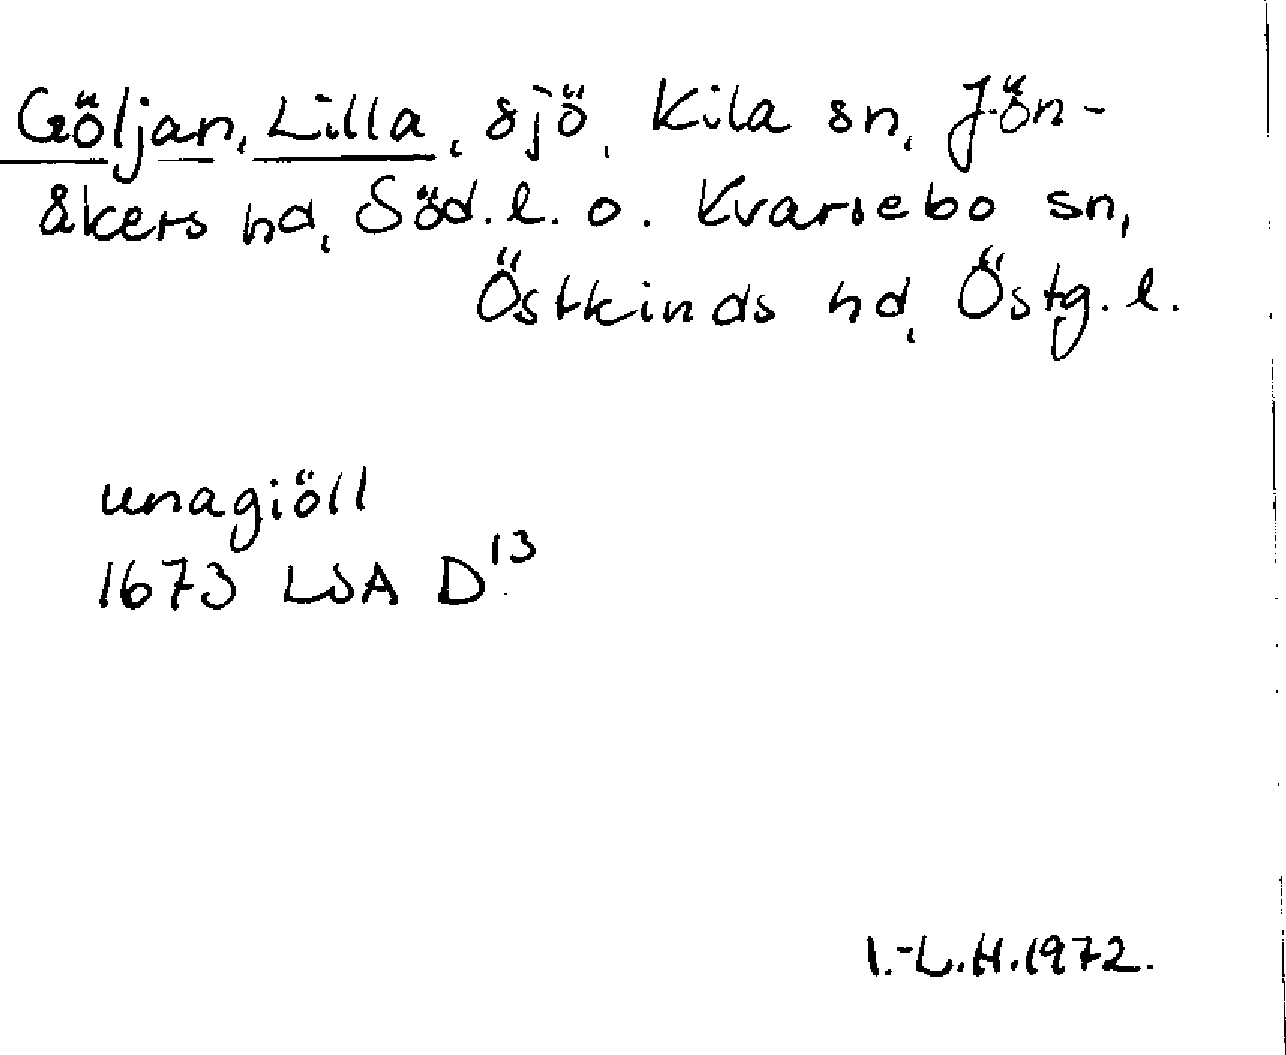 Göljan, Lilla, sjö, Kila sn, Jön-
åkers hd, Söd. l. o. Kvarsebo sn,
Östkinds hd, Östg. l.
unagiöll
1673 LSA D13
I.-L.H.1972.